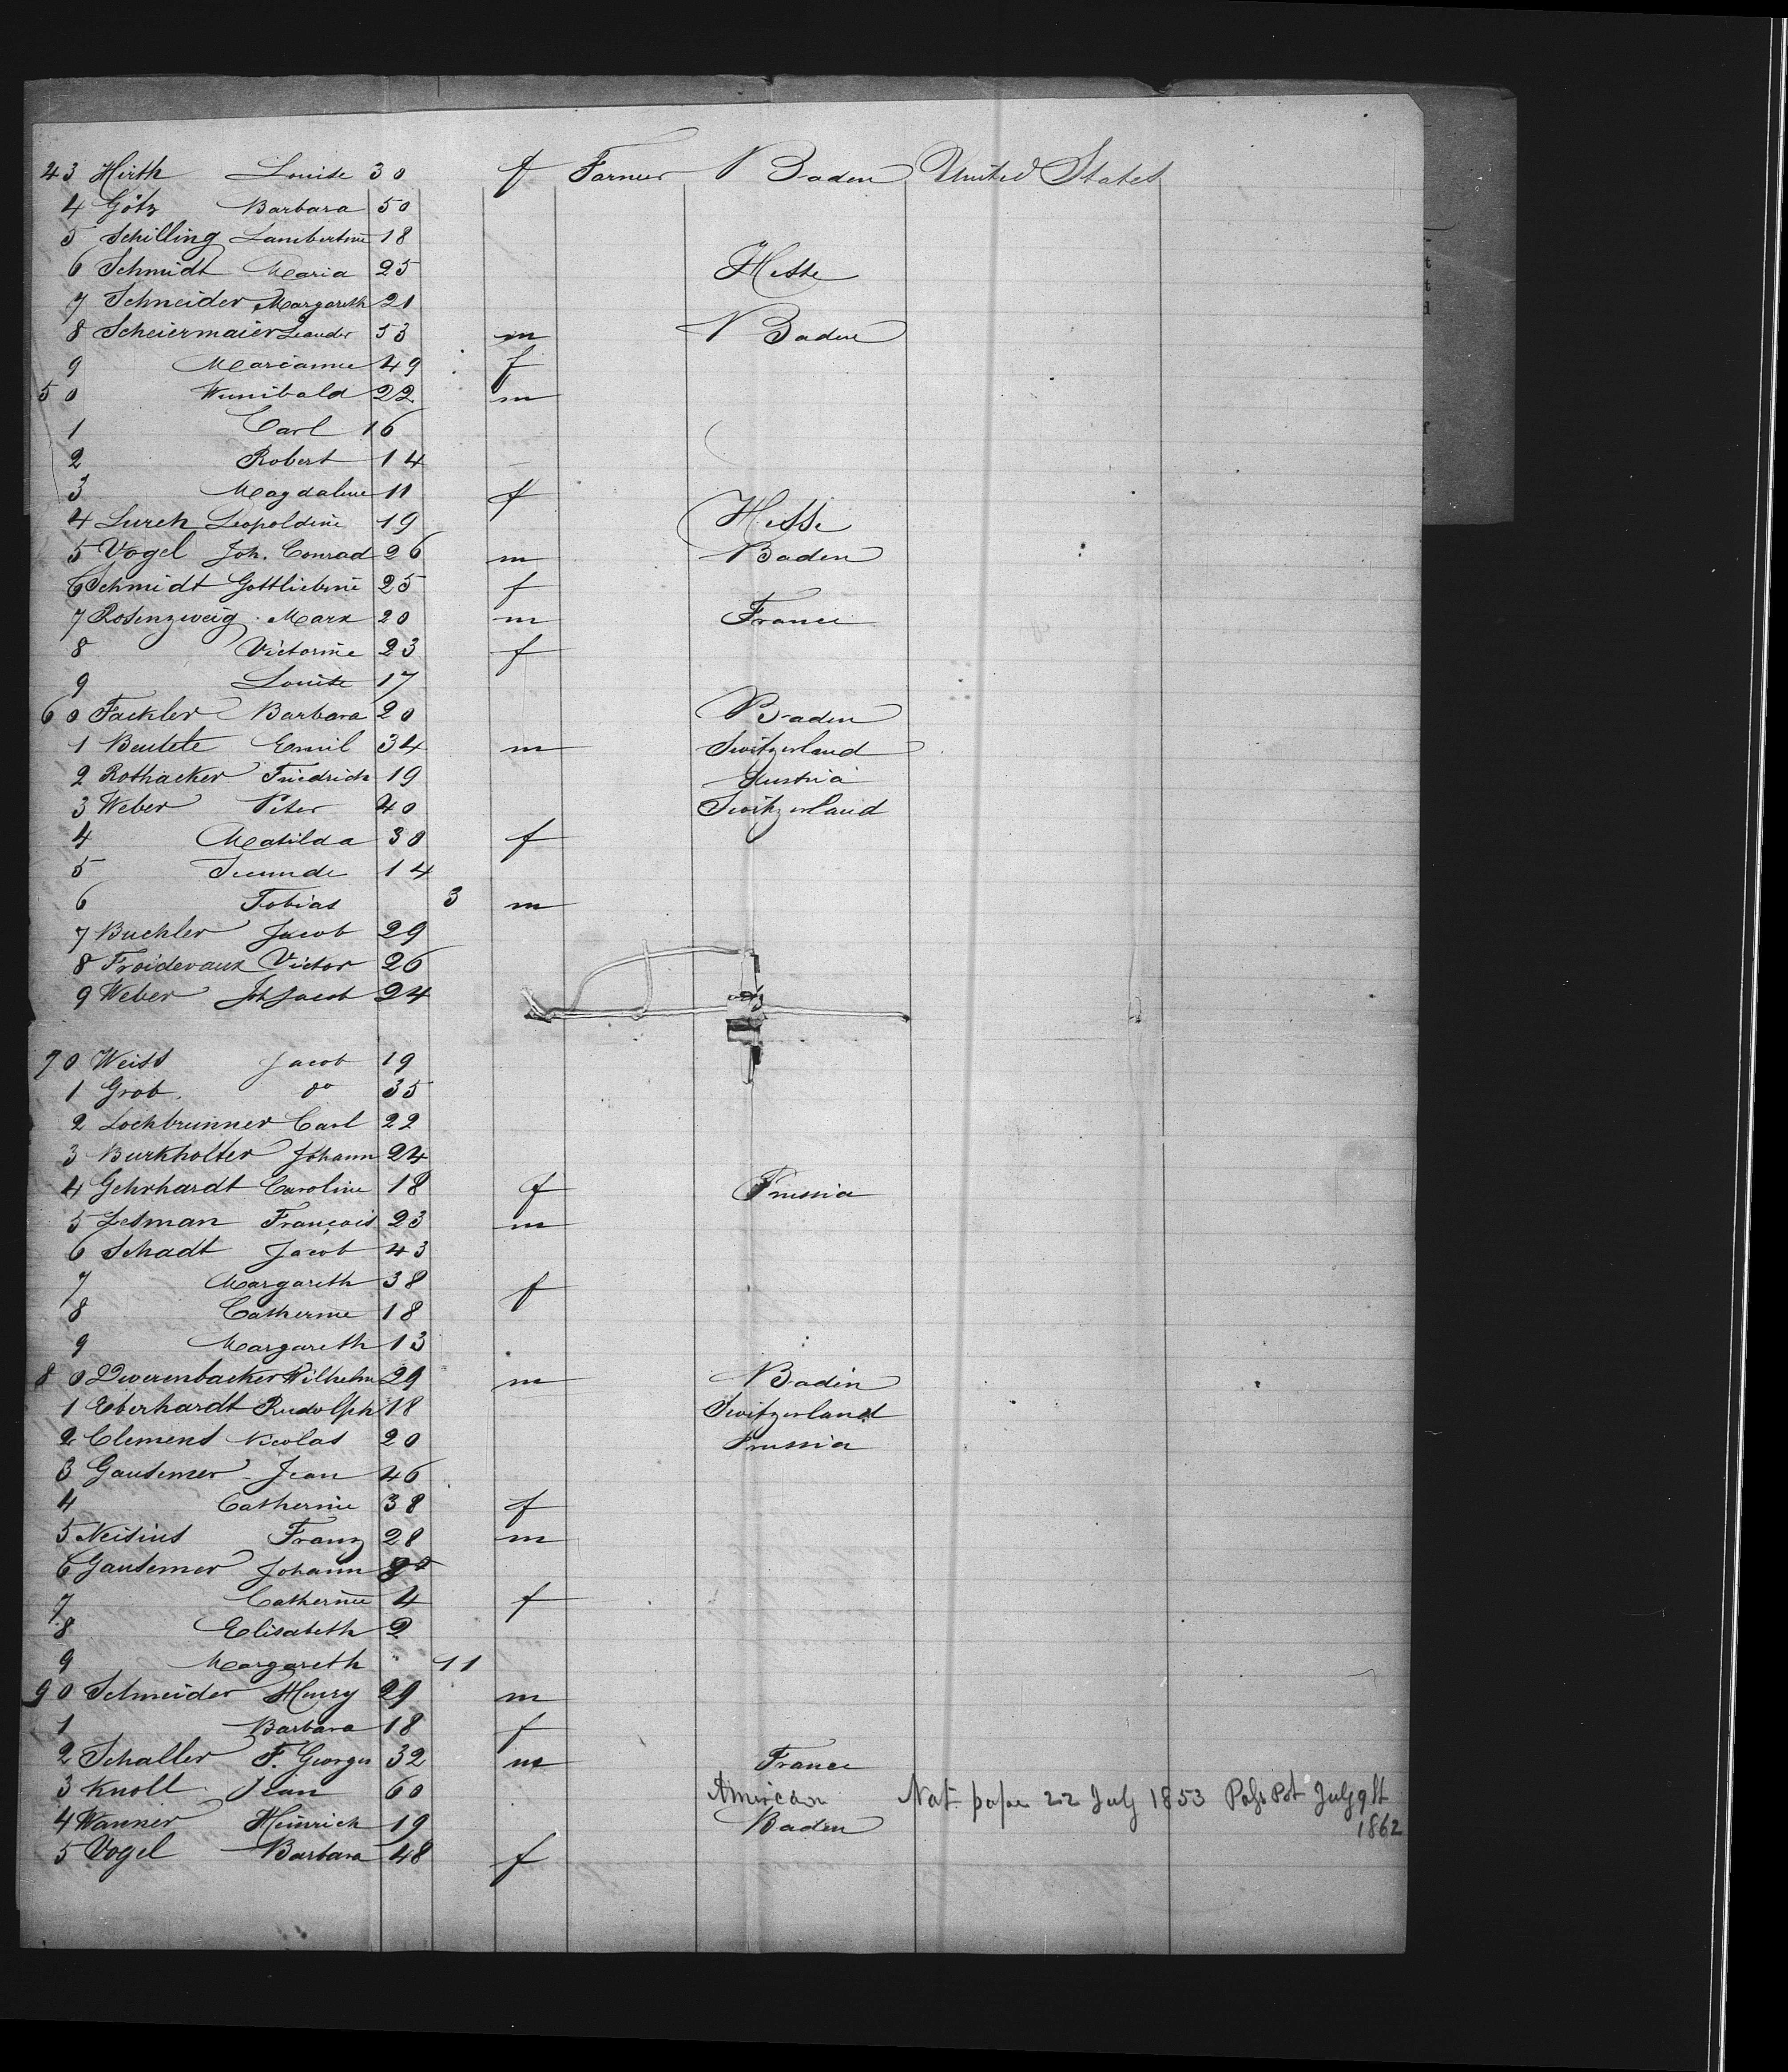 43 Hirth Louise 30 f Farmer Baden United States
4 Götz Barbara 50
5 Schilling Lambertine 18
6 Schmidt Maria 25 Hesse
7 Schneider Margareth 21
8 Scheiermaier Leander 53 m Baden
9 Marianne 49 f
50 Wunibald 22 m
1 Carl 16
2 Robert 14
3 Magdalene 11 f
4 Lurch Leopoldine 19 Hesse
5 Vogel Joh. Conrad 26 m Baden
6 Schmidt Gottliebine 25 f
7 Rosenzweig Marx 20 m France
8 Victorine 23 f
9 Louise 17
60 Fackler Barbara 20 Baden
1 Emil 34 m Switzerland
2 Rothacker Friedrich 19 Austria
3 Weber Peter 40 Switzerland
4 Matilda 30 f
5 14
6 Tobias 3 m
7 Buchler Jacob 29
8 Froidevaux Victor 26
9 Weber Joh Jacob 24
70 Weiss Jacob 19
1 Grob do 35
2 Lochbrunner Carl 22
3 Burkholter Johann 24
4 Gehrhardt Caroline 18 f Prussia
5 Lesman François 23 m
6 Schadt Jacob 43
7 Margareth 38 f
8 Catherine 18
9 Margareth 13
80 Wilhelm 29 m Baden
1 Eberhardt Rudolph 18 Switzerland
2 Clemens Nicolas 20 Prussia
3 Gausemer Jean 46
4 Catherine 38 f
5 Neisius Franz 28 m
6 Gausemer Johann
7 Catherine 4 f
8 Elisabeth 2
9 Margareth " 11
90 Schneider Henry 29 m
1 Barbara 18 f
2 Schaller F. Georges 32 m France
3 Knoll Jean 60 American Nat. pape 22 July 1853 PasPst July 9st
1862
4 Wanner Heinrich 19 Baden
5 Vogel Barbara 48 f